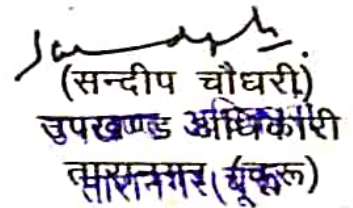 (सन्दीप चौधरी)
उपखण्ड अधिकारी
तारानगर (चूरू)